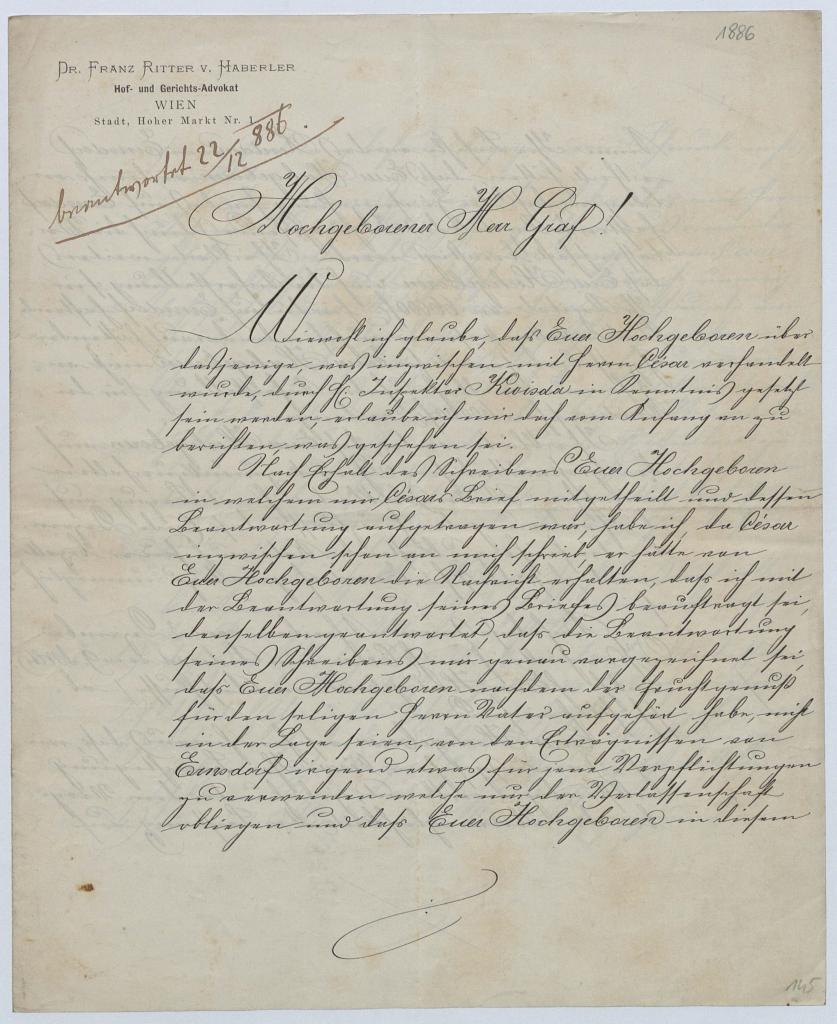 1886
DR. FRANZ RITTER V. HABERLER
Hof- und Gerichts-Advokat
WIEN
Stadt, Hoher Markt Nr. 1
beantwortet 22/12 886.
Hochgeborener Herr Graf!
Wiewohl ich glaube, daß Euer Hochgeboren über
dasjenige, was inzwischen mit Herrn César verhandelt
wurde, durch H. Inspektor Kwisda in Kenntnis gesetzt
sein werden, erlaube ich mir doch vom Anfang an zu
berichten, was geschehen sei.
Nach Erhalt des Schreibens Euer Hochgeboren
in welchem mir César's Brief mitgetheilt und dessen
Beantwortung aufgetragen war, habe ich, da César
inzwischen schon an mich schrieb, er hätte von
Euer Hochgeboren die Nachricht erhalten, daß ich mit
der Beantwortung seines Briefes beauftragt sei,
denselben geantwortet, daß die Beantwortung
seines Schreibens mir genau vorgezeichnet sei,
daß Euer Hochgeboren nachdem der Fruchtgenuß
für den seligen Herrn Vater aufgehört habe, nicht
in der Lage seien, von den Erträgnissen von
Ernsdorf irgend etwas für jene Verpflichtungen
zu verwenden welche nur der Verlassenschaft
obliegen und daß Euer Hochgeboren in diesem
145